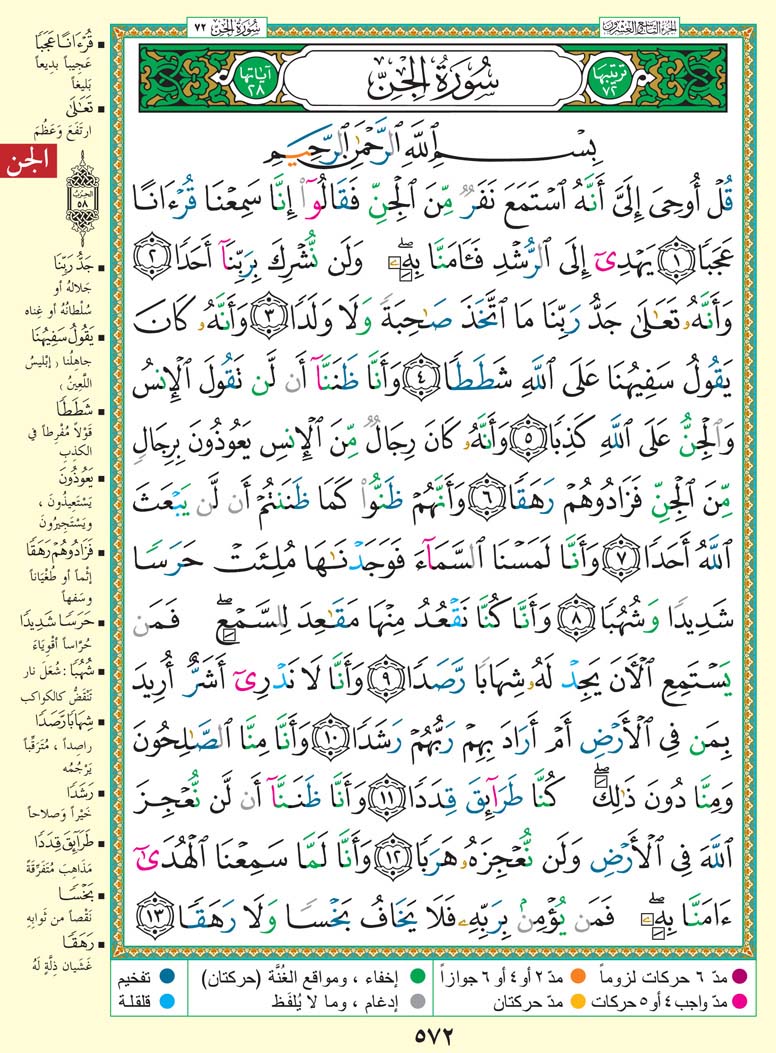 سُورَةُ الجِنّ ٧٢
الجزء التاسع والعشرون
ترتيبها ٧٢
سُورَةُ الجِنّ
آياتها ٢٨
بِسْمِ ٱللَّهِ ٱلرَّحْمَٰنِ ٱلرَّحِيمِ
قُلْ أُوحِىَ إِلَىَّ أَنَّهُ ٱسْتَمَعَ نَفَرٌ مِّنَ ٱلْجِنِّ فَقَالُوٓا۟ إِنَّا سَمِعْنَا قُرْءَانًا
عَجَبًا ١ يَهْدِىٓ إِلَى ٱلرُّشْدِ فَـَٔامَنَّا بِهِۦ ۖ وَلَن نُّشْرِكَ بِرَبِّنَآ أَحَدًا ٢
وَأَنَّهُۥ تَعَٰلَىٰ جَدُّ رَبِّنَا مَا ٱتَّخَذَ صَٰحِبَةً وَلَا وَلَدًا ٣ وَأَنَّهُۥ كَانَ
يَقُولُ سَفِيهُنَا عَلَى ٱللَّهِ شَطَطًا ٤ وَأَنَّا ظَنَنَّآ أَن لَّن تَقُولَ ٱلْإِنسُ
وَٱلْجِنُّ عَلَى ٱللَّهِ كَذِبًا ٥ وَأَنَّهُۥ كَانَ رِجَالٌ مِّنَ ٱلْإِنسِ يَعُوذُونَ بِرِجَالٍ
مِّنَ ٱلْجِنِّ فَزَادُوهُمْ رَهَقًا ٦ وَأَنَّهُمْ ظَنُّوا۟ كَمَا ظَنَنتُمْ أَن لَّن يَبْعَثَ
ٱللَّهُ أَحَدًا ٧ وَأَنَّا لَمَسْنَا ٱلسَّمَآءَ فَوَجَدْنَٰهَا مُلِئَتْ حَرَسًا
شَدِيدًا وَشُهُبًا ٨ وَأَنَّا كُنَّا نَقْعُدُ مِنْهَا مَقَٰعِدَ لِلسَّمْعِ ۖ فَمَن
يَسْتَمِعِ ٱلْـَٔانَ يَجِدْ لَهُۥ شِهَابًا رَّصَدًا ٩ وَأَنَّا لَا نَدْرِىٓ أَشَرٌّ أُرِيدَ
بِمَن فِى ٱلْأَرْضِ أَمْ أَرَادَ بِهِمْ رَبُّهُمْ رَشَدًا ١٠ وَأَنَّا مِنَّا ٱلصَّٰلِحُونَ
وَمِنَّا دُونَ ذَٰلِكَ ۖ كُنَّا طَرَآئِقَ قِدَدًا ١١ وَأَنَّا ظَنَنَّآ أَن لَّن نُّعْجِزَ
ٱللَّهَ فِى ٱلْأَرْضِ وَلَن نُّعْجِزَهُۥ هَرَبًا ١٢ وَأَنَّا لَمَّا سَمِعْنَا ٱلْهُدَىٰٓ
ءَامَنَّا بِهِۦ ۖ فَمَن يُؤْمِنۢ بِرَبِّهِۦ فَلَا يَخَافُ بَخْسًا وَلَا رَهَقًا ١٣
الجن
الحزب
٥٨
▪ قُرْءَانًا عَجَبًا
عَجِيباً بَدِيعاً
بَلِيغاً
▪ تَعَٰلَىٰ
ارتَفَعَ وَعَظُمَ
▪ جَدُّ رَبِّنَا
جَلالهُ أو
سُلْطانُهُ أو غِناه
▪ يَقُولُ سَفِيهُنَا
جاهِلُنا ( إبْليسُ
اللَّعِينُ )
▪ شَطَطًا
قَوْلاً مُفْرِطاً في
الكَذِبِ
▪ يَعُوذُونَ
يَسْتَعِيذُونَ ،
ويَسْتَجِيرُونَ
▪ فَزَادُوهُمْ رَهَقًا
إثْماً أو طُغْيَاناً
وسَفَهاً
▪ حَرَسًا شَدِيدًا
حُرَّاساً أقْوِيَاءَ
▪ شُهُبًا : شُعَلَ نار
تَنْقَضُّ كالكَواكب
▪ شِهَابًا رَّصَدًا
راصِداً ، مُتَرَقِّباً
يَرْجُمُه
▪ رَشَدًا
خَيْراً وَصَلاحاً
▪ طَرَآئِقَ قِدَدًا
مَذَاهِبَ مُتَفَرِّقَةً
▪ بَخْسًا
نَقْصاً من ثَوابِهِ
▪ رَهَقًا
غَشَيان ذِلَّةٍ لَهُ
مدّ ٦ حركات لزوماً مدّ ٢ أو ٤ أو ٦ جوازاً
مدّ واجب ٤ أو ٥ حركات مدّ حركتان
إخفاء ، ومواقع الغُنَّة (حركتان)
إدغام ، وما لا يُلفَظ
تفخيم
قلقلة
٥٧٢